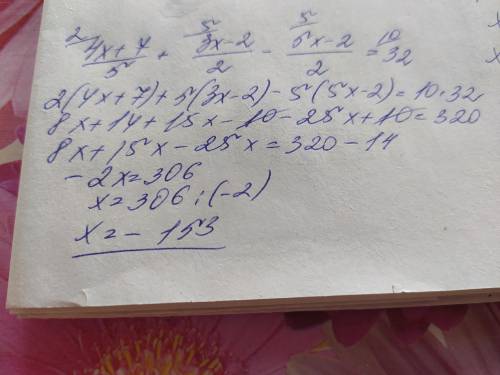 2 5 5 10
4x+7/5 + 3x-2/2 - 5x-2/2 = 32
2(4x+7)+5(3x-2)-5(5x-2)=10·32
8x+14+15x-10-25x+10=320
8x+15x-25x=320-14
-2x=306
x=306:(-2)
x=-153